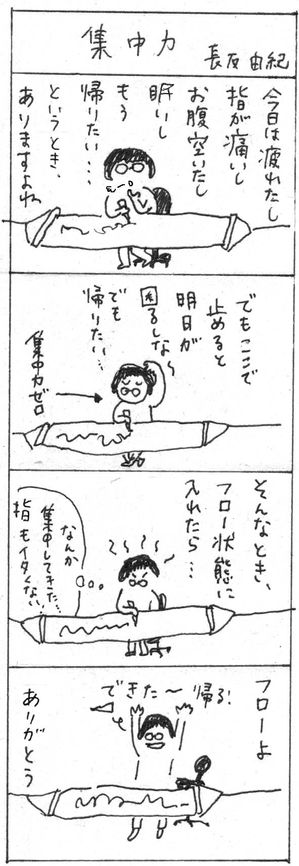 集中力
長友由紀
今日は疲れたし
指が痛いし
お腹空いたし
眠いし
もう
帰りたい・・・
というとき、
ありますよね
でもここで
止めると
明日が
困るしな〜
でも
帰りたい…
集中力ゼロ
そんなとき、
フロー状態に
入れたら…
なんか
集中してきた…
指もイタくない
フローよ
できた〜帰る!
ありがとう